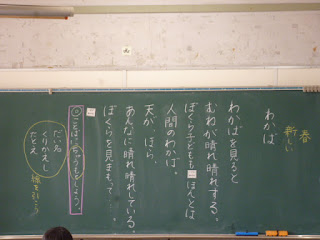 春
新しい
わかば
わかばを見ると
むねが晴れ晴れする。
ぼくら子どもも ほんとは
人間のわかば。
天が、ほら。
あんなに晴れ晴れしている。
ぼくらを見まもって…。
ことばにちゅうもくしよう。
だい名
くりかえし
たとえ
線を引こう